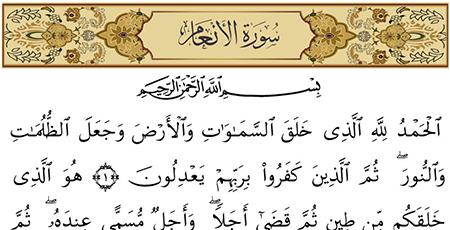 سُورَةُ الأَنْعَامِ
بِسْمِ ٱللَّهِ ٱلرَّحْمَٰنِ ٱلرَّحِيمِ
ٱلْحَمْدُ لِلَّهِ ٱلَّذِى خَلَقَ ٱلسَّمَٰوَٰتِ وَٱلْأَرْضَ وَجَعَلَ ٱلظُّلُمَٰتِ
وَٱلنُّورَ ۖ ثُمَّ ٱلَّذِينَ كَفَرُوا۟ بِرَبِّهِمْ يَعْدِلُونَ ﴿١﴾ هُوَ ٱلَّذِى
خَلَقَكُم مِّن طِينٍ ثُمَّ قَضَىٰٓ أَجَلًا ۖ وَأَجَلٌ مُّسَمًّى عِندَهُۥ ۖ ثُمَّ